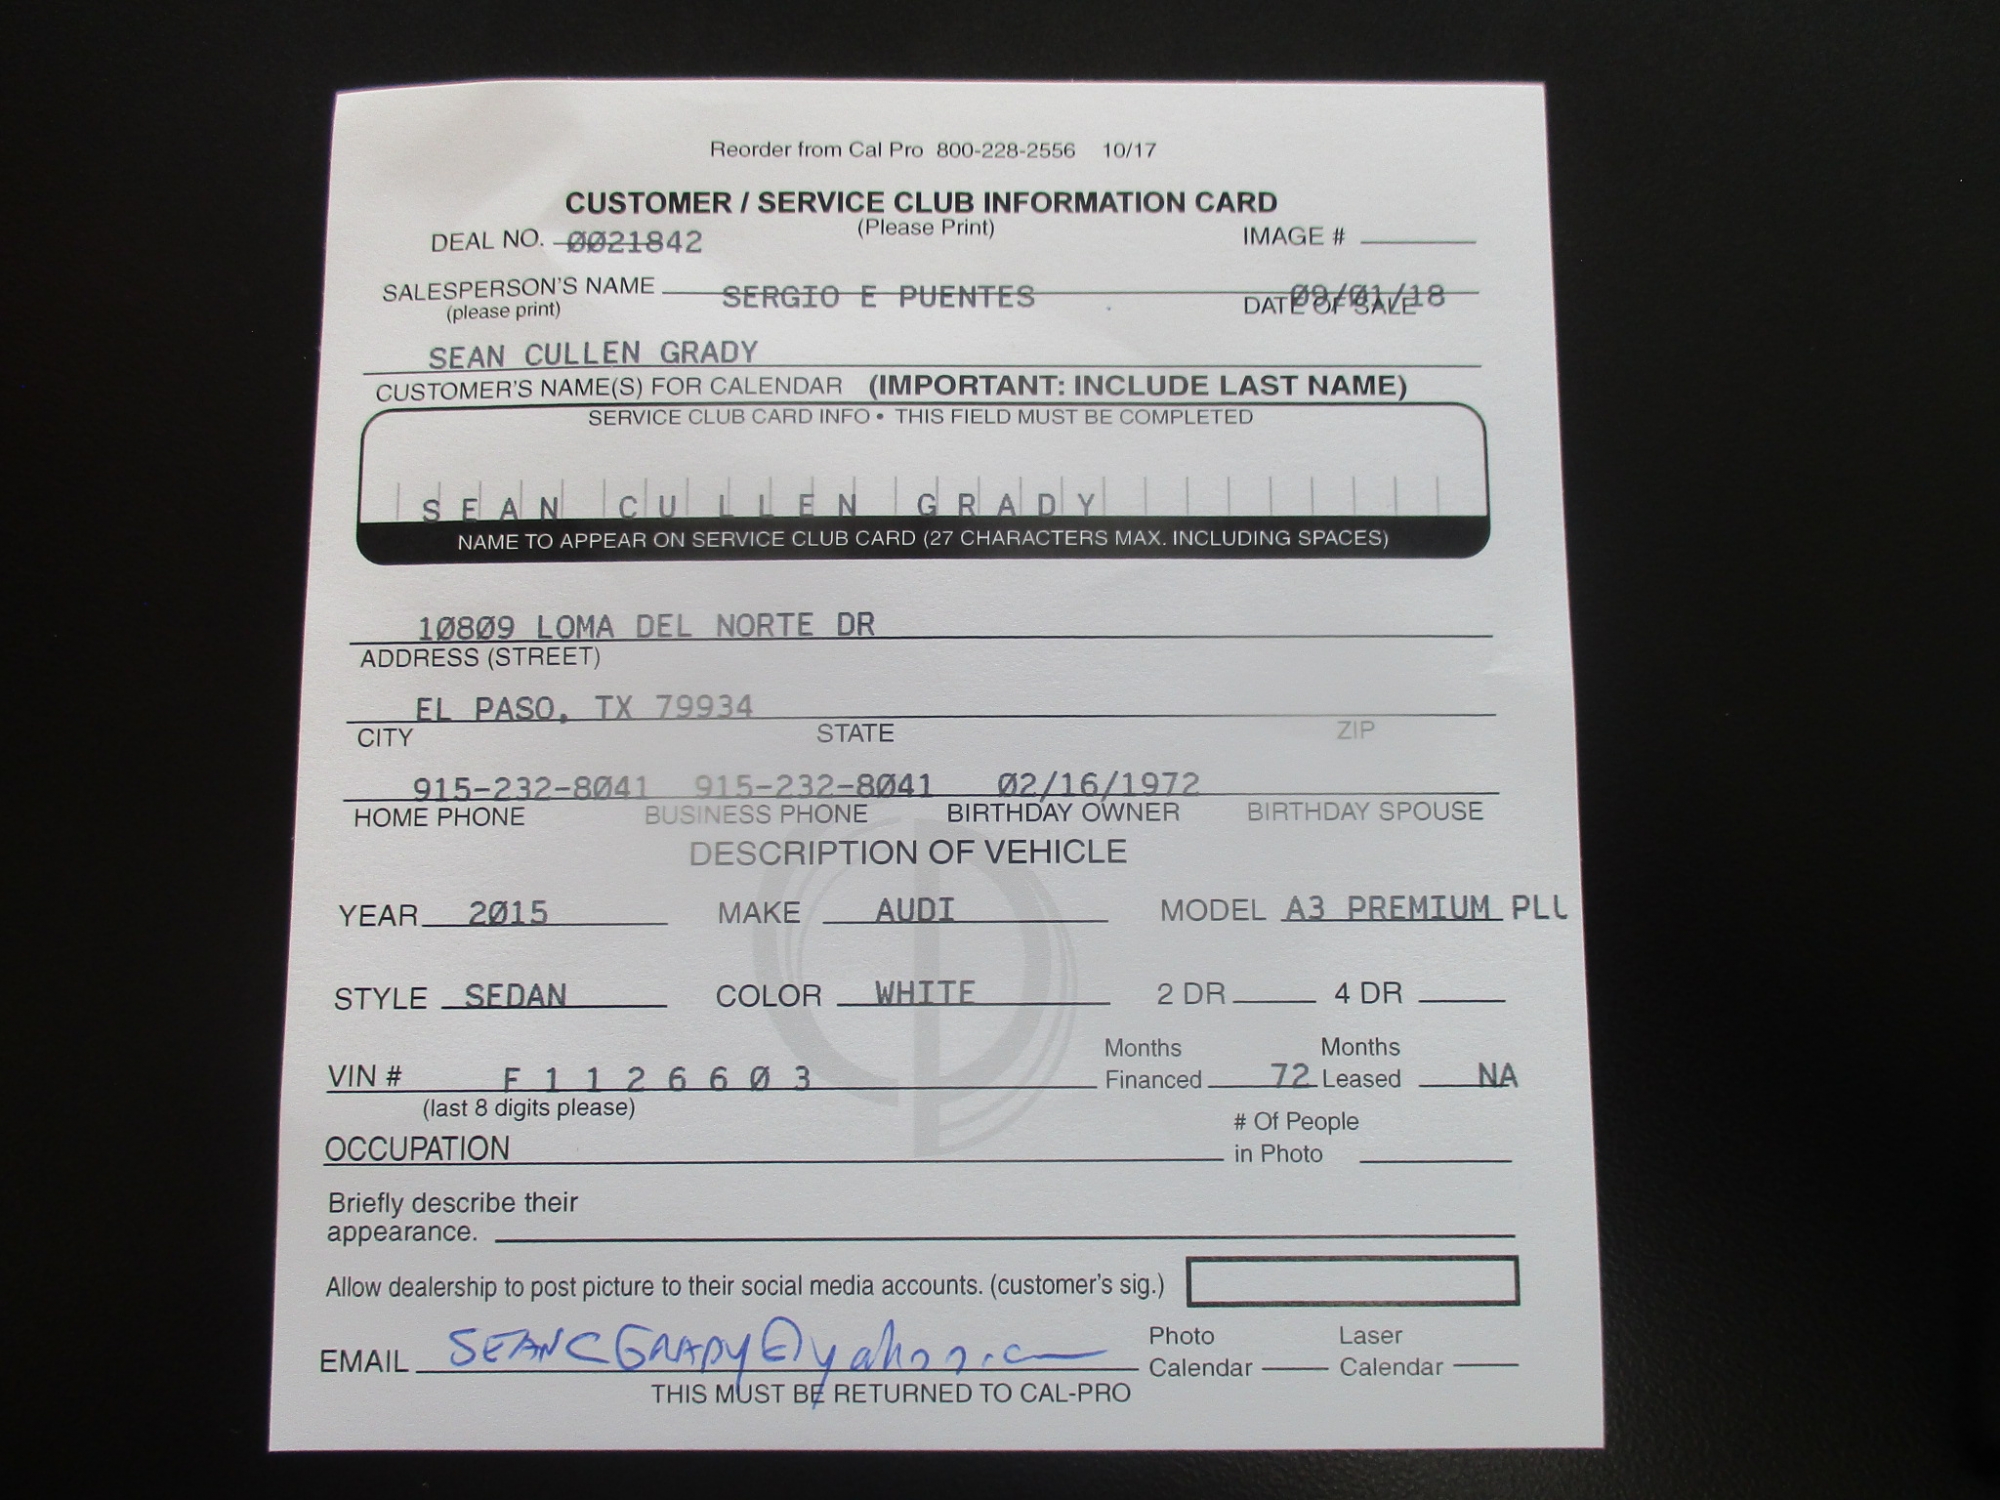 Reorder from Cal Pro 800-228-2556 10/17
CUSTOMER / SERVICE CLUB INFORMATION CARD
(Please Print)
DEAL NO. 0021842 IMAGE #
SALESPERSON'S NAME SERGIO E PUENTES DATE OF SALE 09/01/18
(please print)
SEAN CULLEN GRADY
CUSTOMER'S NAME(S) FOR CALENDAR (IMPORTANT: INCLUDE LAST NAME)
SERVICE CLUB CARD INFO • THIS FIELD MUST BE COMPLETED
SEAN CULLEN GRADY
NAME TO APPEAR ON SERVICE CLUB CARD (27 CHARACTERS MAX. INCLUDING SPACES)
10809 LOMA DEL NORTE DR
ADDRESS (STREET)
EL PASO, TX 79934
CITY STATE ZIP
915-232-8041 915-232-8041 02/16/1972
HOME PHONE BUSINESS PHONE BIRTHDAY OWNER BIRTHDAY SPOUSE
DESCRIPTION OF VEHICLE
YEAR 2015 MAKE AUDI MODEL A3 PREMIUM PLU
STYLE SEDAN COLOR WHITE 2 DR 4 DR
Months Months
VIN # F1126603 Financed 72 Leased NA
(last 8 digits please)
# Of People
OCCUPATION in Photo
Briefly describe their
appearance.
Allow dealership to post picture to their social media accounts. (customer's sig.)
Photo Laser
EMAIL SEANCGRADY@yahoo.c Calendar Calendar
THIS MUST BE RETURNED TO CAL-PRO